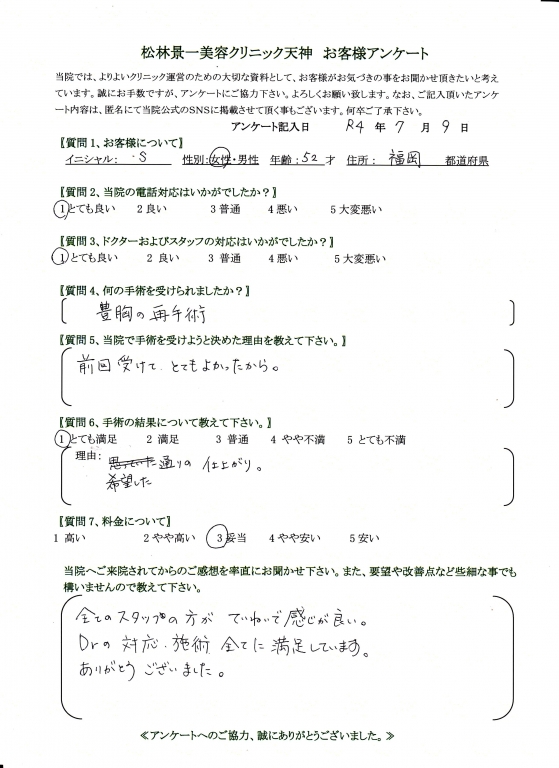 松林景一美容クリニック天神　お客様アンケート
当院では、よりよいクリニック運営のための大切な資料として、お客様がお気づきの事をお聞かせ頂きたいと考え
ています。誠にお手数ですが、アンケートにご協力下さい。よろしくお願い致します。なお、ご記入頂いたアンケ
ート内容は、匿名にて当院公式のSNSに掲載させて頂く事もございます。何卒ご了承下さい。
アンケート記入日　R4 年 7 月 9 日
〖質問1、お客様について〗
イニシャル： S　性別：女性・男性　年齢：52 才　住所： 福岡 都道府県
〖質問2、当院の電話対応はいかがでしたか？〗
1 とても良い　2 良い　3 普通　4 悪い　5 大変悪い
〖質問3、ドクターおよびスタッフの対応はいかがでしたか？〗
1 とても良い　2 良い　3 普通　4 悪い　5 大変悪い
〖質問4、何の手術を受けられましたか？〗
豊胸の再手術
〖質問5、当院で手術を受けようと決めた理由を教えて下さい。〗
前回受けて、とてもよかったから。
〖質問6、手術の結果について教えて下さい。〗
1 とても満足　2 満足　3 普通　4 やや不満　5 とても不満
理由： 思っていた通りの 仕上がり。
希望した
〖質問7、料金について〗
1 高い　2 やや高い　3 妥当　4 やや安い　5 安い
当院へご来院されてからのご感想を率直にお聞かせ下さい。また、要望や改善点など些細な事でも
構いませんので教えて下さい。
全てのスタッフの方が ていねいで感じが良い。
Drの対応・施術 全てに満足しています。
ありがとうございました。
≪アンケートへのご協力、誠にありがとうございました。≫